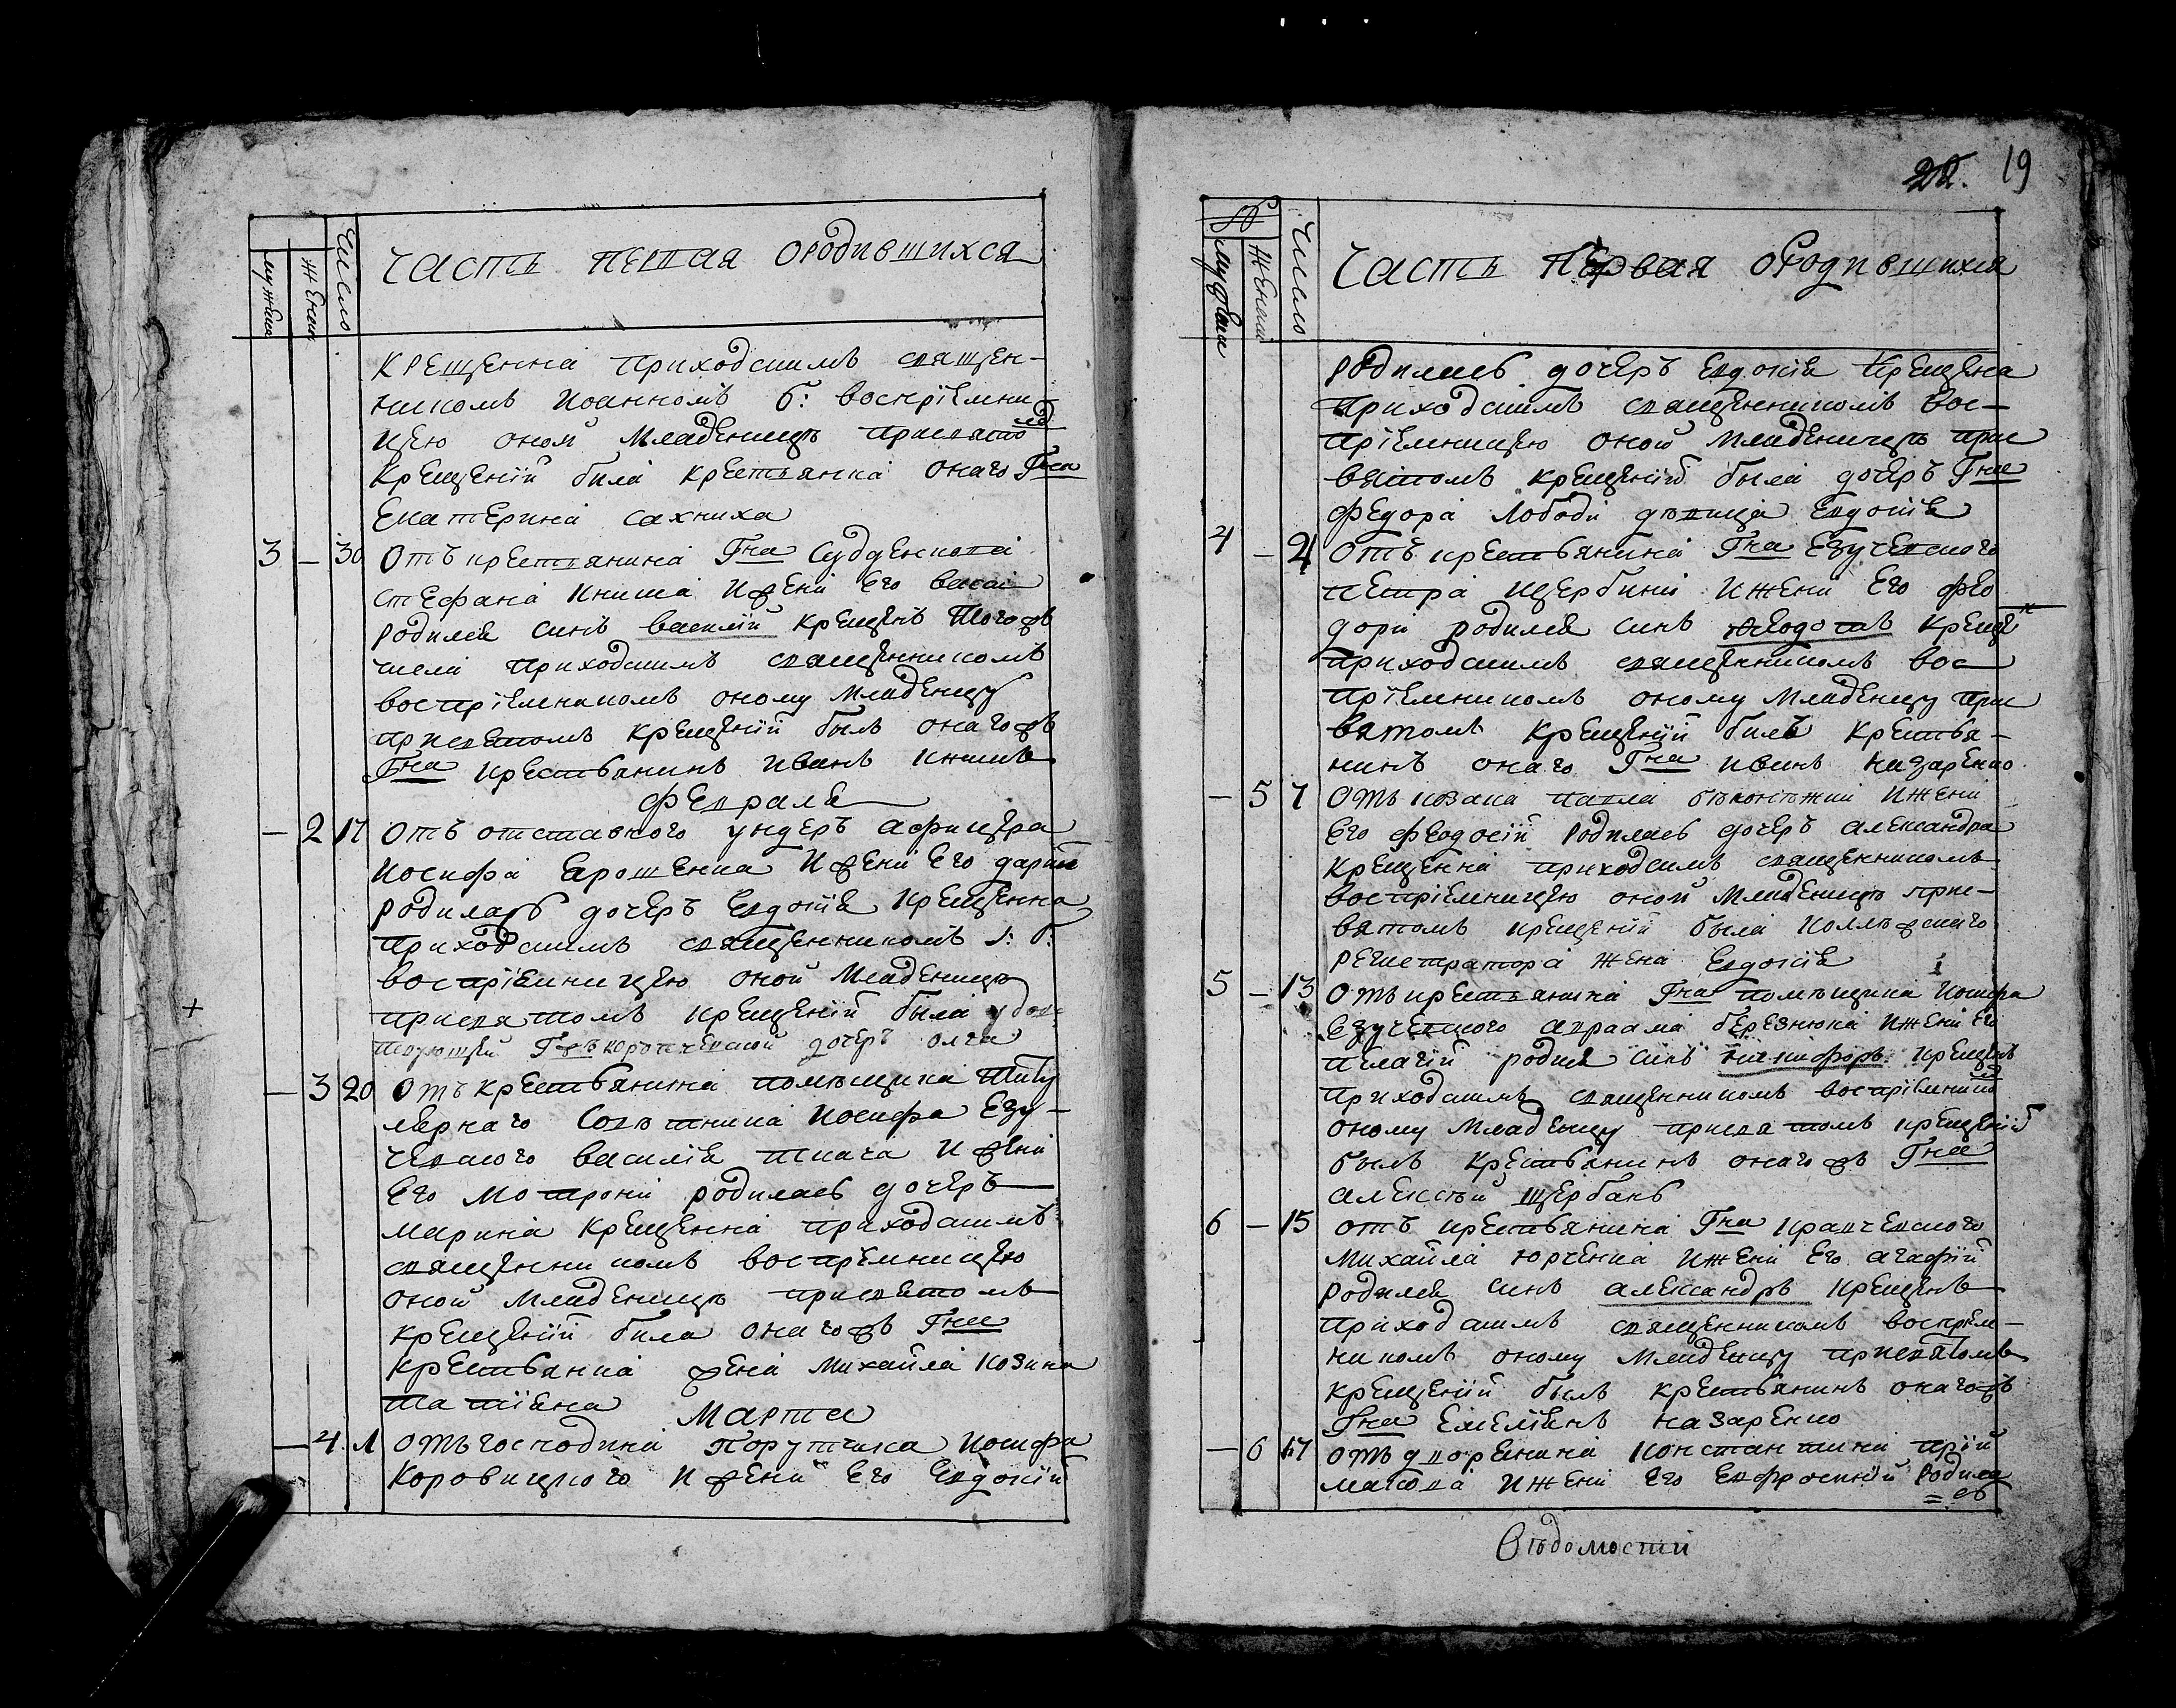 22. 19
мужеска
женска
Число
Часть первая о родившихся
крещенна приходскимъ священ-
никомъ Иоанномъ Б: воспріемни
цею оной младеницѣ присвято
крещеній била крестянка онаго Гна
Екатерина Сахниха
3 — 30 Отъ крестянина Гна
Стефана Книша и жени его
родился синъ василій крещенъ тогожъ
числа приходскимъ священникомъ
воспріемникомъ оному младенцу
присвятомъ крещеній былъ онагожъ
Гна крестьянинъ Иванъ Книшъ
Февраля
— 2 17 Отъ отставного ундеръ афицера
Иосифа Ерошенка и жени его дарии
родилась дочеръ Евдокія крещенна
приходскимъ священникомъ І: Б:
воспріемницею оной младеницѣ
присвятомъ крещеній была
дочеръ олга
— 3 20 Отъ крестьянина помѣщика титу
лярнаго совѣтника Иосифа Езу-
чевского василія ткача и жени
его мотрони родилась дочеръ
марина крещенна приходскимъ
священникомъ воспріемницею
оной младеницѣ присвятомъ
крещеній била онагожъ Гна
крестьянка жена михайла
татіяна
Марта
— 4. 1 Отъ господина порутчика Иосифа
Коровицкого и жени его Евдокіи
мужеска
женска
Число
Часть первая о родившихся
родилась дочеръ Евдокія крещена
приходскимъ священникомъ вос-
пріемницею оной младеницѣ прис
вятомъ крещеній была дочеръ Гна
Федора Лободи дѣвица Евдокія
4 — 4 Отъ крестьянина Гна Езучевского
Петра Щербини и жени его Фео
дори родился синъ Феодотъ крещен
приходскимъ священникомъ вос
пріемникомъ оному младенцу прис
вятомъ крещеній билъ крестья-
нинъ онаго Гна Иванъ Назаренко.
— 5 7 Отъ козака павла и жени
его феодосій родилась дочеръ александра
крещенна приходскимъ священникомъ
воспріемницею оной младеницѣ прис-
вятомъ крещеній была колѣжскаго
регистратора жена Евдокія
5 — 13 Отъ крестьянина Гна помѣщика Иосифа
Езучевского авраама березнюка и жени его
пелагій родился синъ никифоръ крещенъ
приходскимъ священникомъ воспріемнико
оному младенцу присвятомъ крещеній
былъ крестьянинъ онагожъ Гна
алексѣй щербанъ
6 — 15 отъ крестьянина Гна кравчевского
михайла юрченка и жени его агафій
родился синъ александръ крещенъ
приходскимъ священникомъ воспріем-
никомъ оному младенцу присвятомъ
крещеній былъ крестьянинъ онагожъ
Гна Емеліянъ назаренко
— 6 17 отъ дворянина константина
и жени его Евфросиній родила
= сь
Вѣдомостій